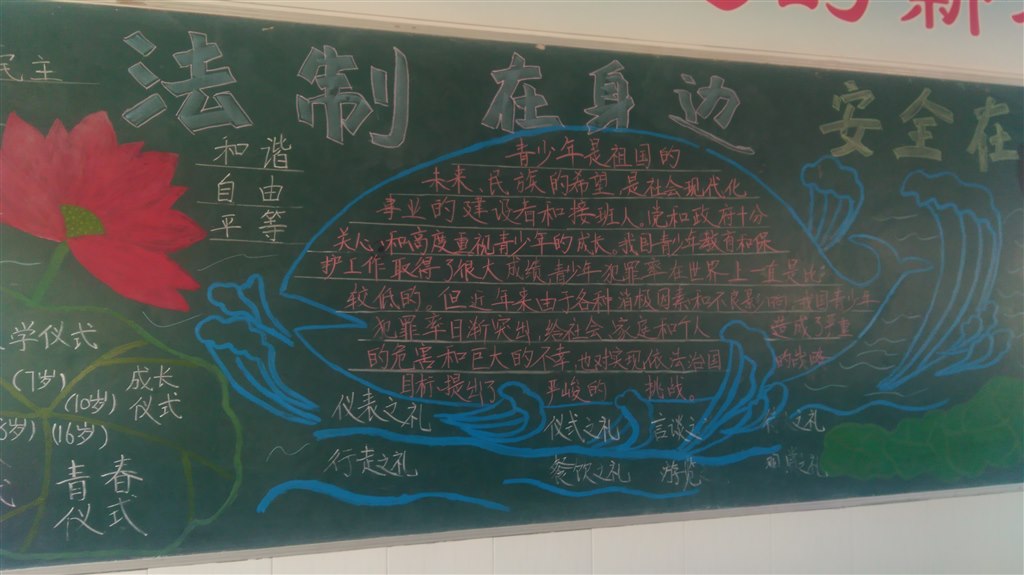 的新
民主
法制在身边
安全在
和谐
自由
平等
青少年是祖国的
未来、民族的希望,是社会现代化
事业的建设者和接班人,党和政府十分
关心和高度重视青少年的成长,我国青少年教育和保
护工作取得了很大成绩,青少年犯罪率在世界上一直是比
较低的。但近年来由于各种消极因素和不良影响,我国青少年
犯罪率日渐突出,给社会、家庭和个人造成了严重
的危害和巨大的不幸,也对实现依法治国的战略
目标提出了严峻的挑战。
学仪式
(7岁)
成长
仪式
(10岁)
(16岁)
青春
仪式
仪表之礼
仪式之礼
言谈之
之礼
行走之礼
餐饮之礼
游览
之礼